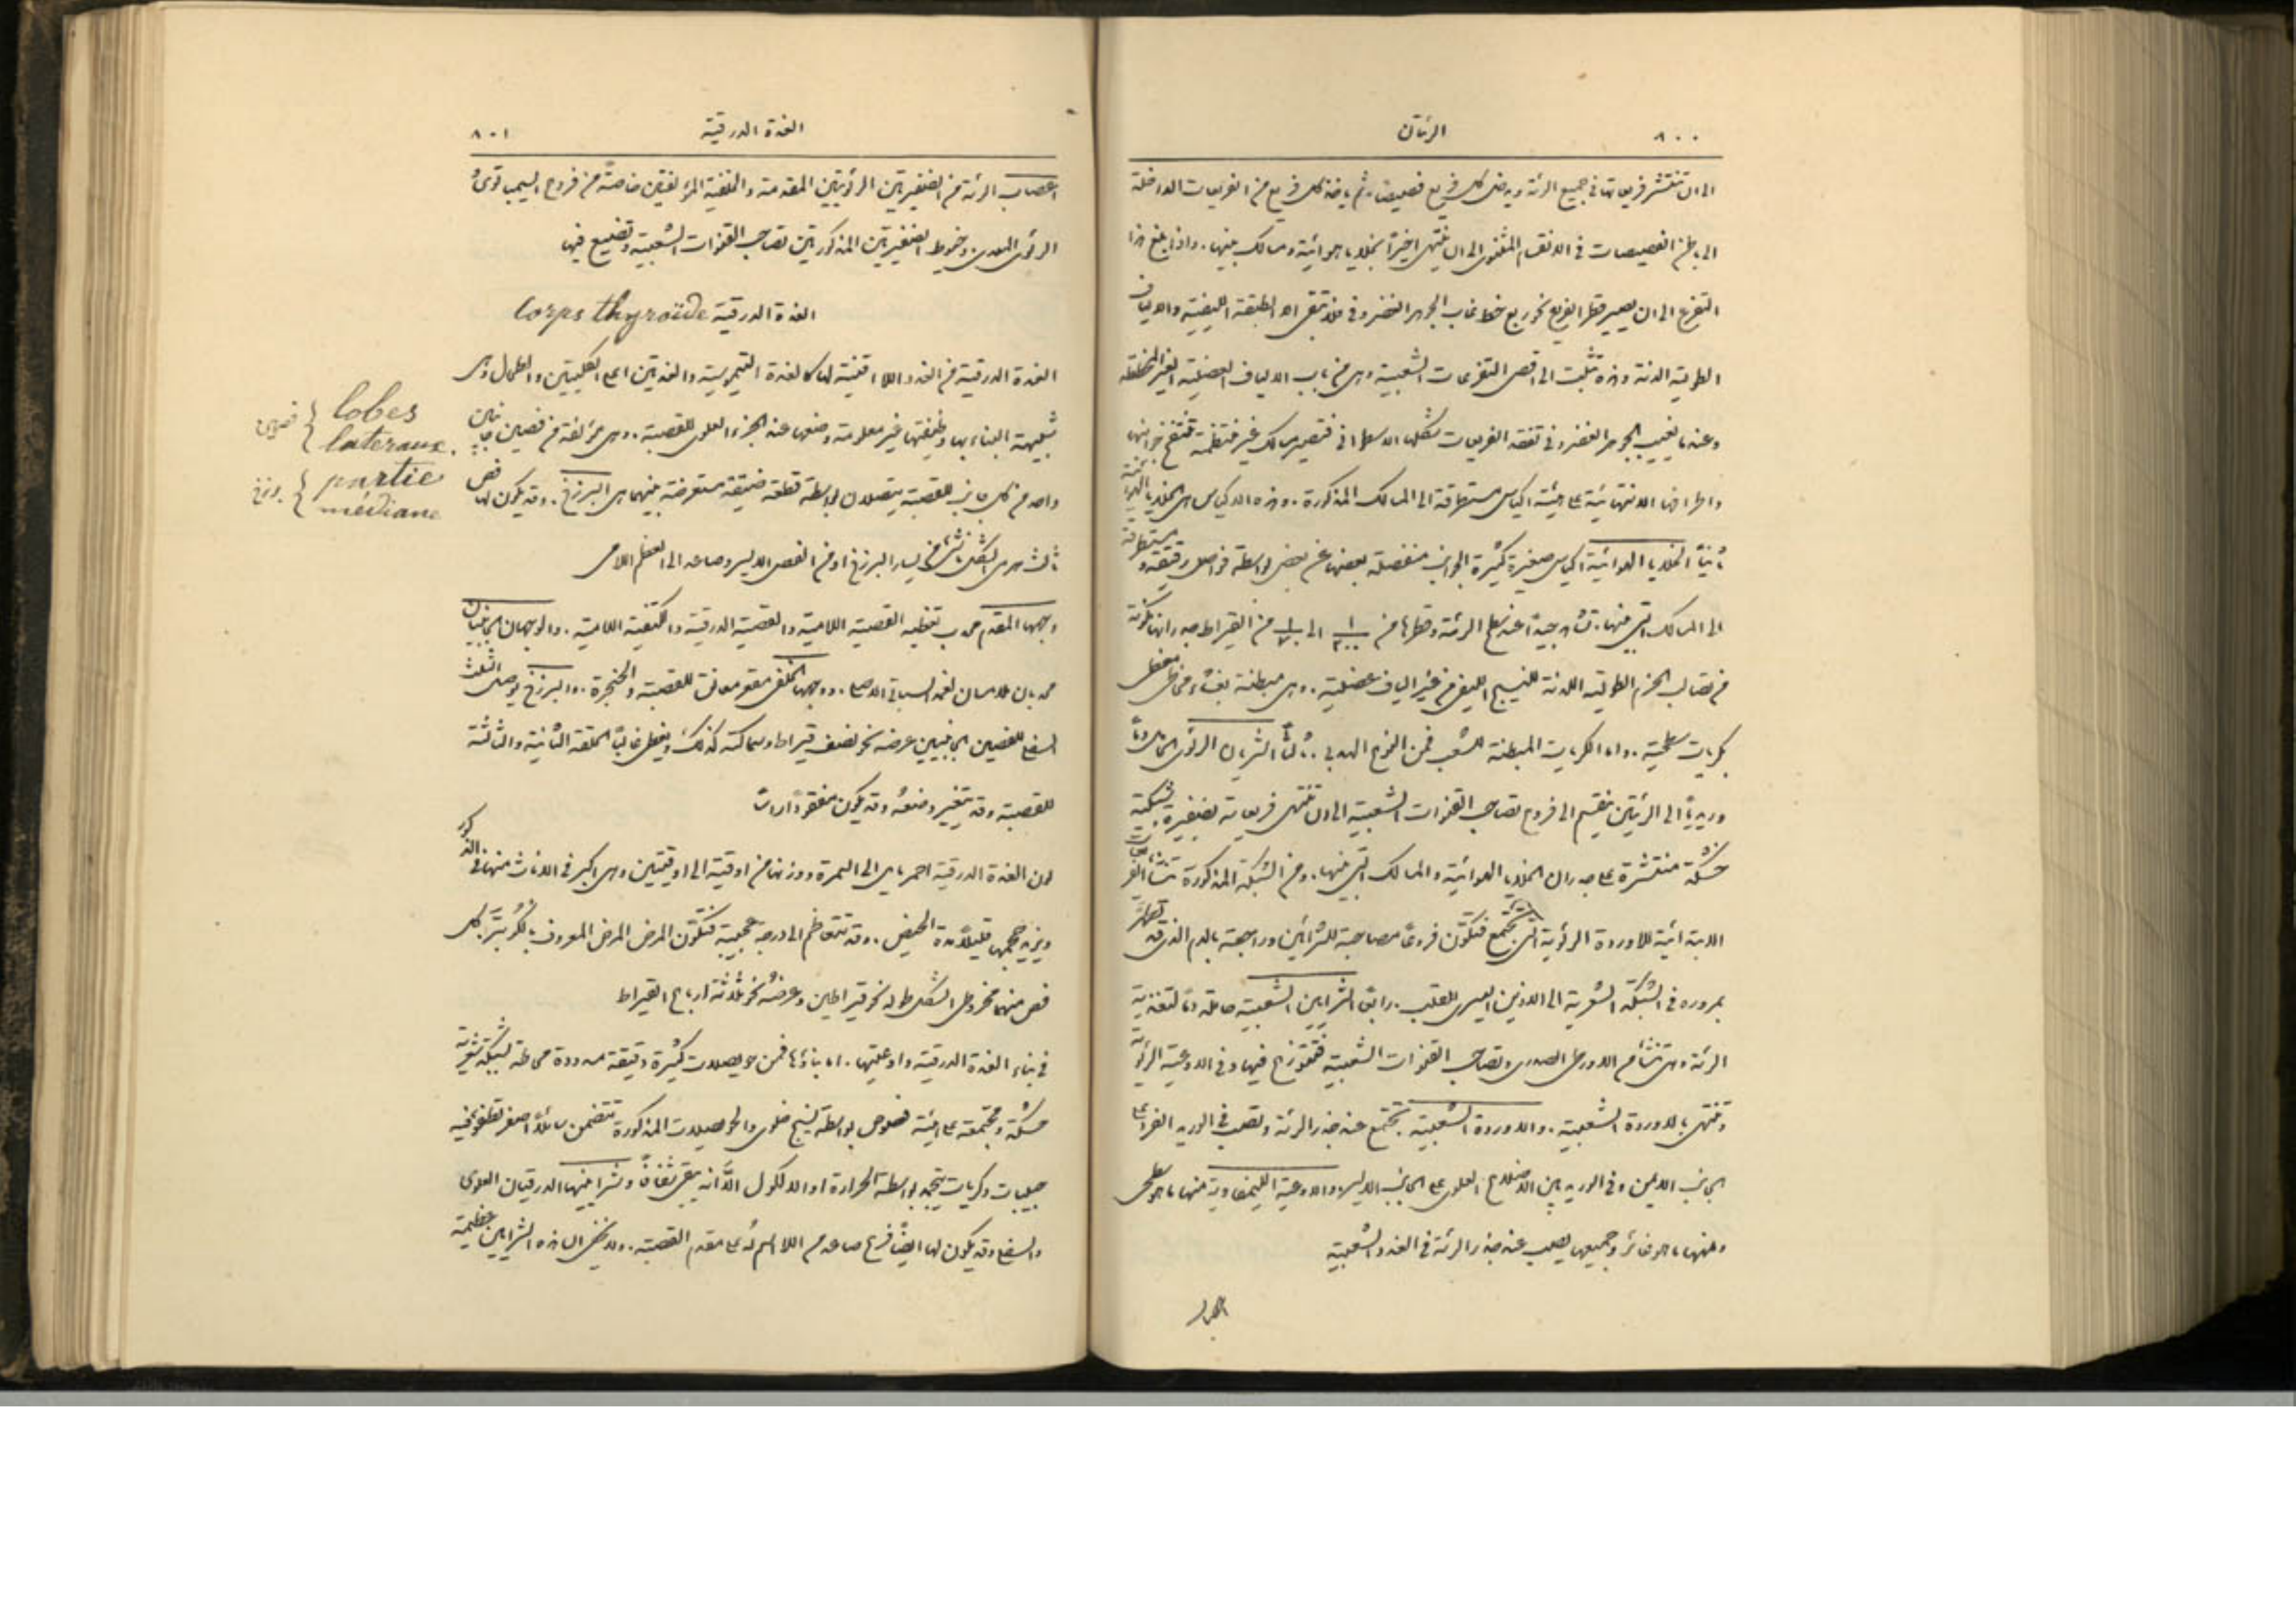 ٨٠٠ الرئتان
الى ان تنتشر فريعاتها في جميع الرئة ويدخل كل فريع فصيصًا ثم ياخذ كل فريع من الفريعات الداخلة
الى باطن الفصيصات في الانقسام المثنوي الى ان ينتهي اخيرًا بخلايا هوائية ومسالك بينها. واذا بلغ هذا
التفرع الى ان يصير قطر الفريع نحو ربع خط غاب الجوهر الغضروفي فلا تبقى الا الطبقة الليفية والالياف
الطولية اللدنة وهذه تثبت الى اقصى التفرعات الشعبية وهي من باب الالياف العضلية الغير المخططة
وعند ما يغيب الجوهر الغضروفي تفقد الفريعات شكلها الاسطواني فتصير مسالك غير منتظمة تنتفخ جوانبها
واطرافها الانتهائية على هيئة اكياس مستطرقة الى المسالك المذكورة. وهذه الاكياس هي الخلايا الهوائية
ثانيًا الخلايا الهوائية اكياس صغيرة كثيرة الجوانب منفصلة بعضها عن بعض بواسطة فواصل رقيقة ومستطرقة
الى المسالك التي بينها. تشاهد جيدًا عند سطح الرئة وقطرها من ١/٢٠٠ الى ١/٧٠ من القيراط جدرانها مكونة
من تصالب الحزم الطولية اللدنة للنسيج الليفي من غير الياف عضلية. وهي مبطنة بغشاء مخاطي مغطى
بكريات سطحية. واما الكريات المبطنة للشعب فمن النوع الهدبي. ثالثًا الشريان الرئوي الحامل دمًا
وريديًا الى الرئتين ينقسم الى فروع تصاحب القنوات الشعبية الى ان تنتهي فريعاته بضفيرة شبكية
مشبكة منتشرة على جدران الخلايا الهوائية والمسالك التي بينها. ومن الشبكة المذكورة تنشأ الفريعات
الابتدائية للاوردة الرئوية التي تجتمع فتكوّن فروعًا مصاحبة للشرائين وراجعة بالدم الذي قد تطهر
بمروره في الشبكة الشعرية الى الاذين اليسرى للقلب. رابعًا الشرايين الشعبية حاملة دمًا لتغذية
الرئة وهي تنشأ من الاورطى الصدري وتصاحب القنوات الشعبية فتتوزع فيها وفي الاوعية الرئوية
وتنتهي بالاوردة الشعبية. والاوردة الشعبية تجتمع عند جذر الرئة وتصب في الوريد الفرد على
الجانب الايمن وفي الوريد بين الاضلاع العلوي على الجانب الايسر. والاوعية الليمفاوية منها ما هو سطحي
ومنها ما هو غائر وجميعها يصب عند جذر الرئة في الغدد الشعبية
الغدة الدرقية ٨٠١
اعصاب الرئة من الضفيرتين الرئويتين المقدمة والخلفية المؤلفتين خاصةً من فروع السيمباتوي و
الرئوي المعدي. وخيوط الضفيرتين المذكورتين تصاحب القنوات الشعبية وتضيع فيها
الغدة الدرقية Corps thyroïde
الغدة الدرقية من الغدد اللا اقنية لها كالغدة التيموسية والغدتين اعلى الكليتين والطحال وهي
شبيهة البناء بها وظيفتها غير معلومة وضعها عند الجزء العلوي للقصبة. وهي مؤلفة من فصين جانبيين
واحد من كل جانب للقصبة يتصلان بواسطة قطعة ضيقة مستعرضة بينهما هي البرزخ. وقد يكون لها فص
ثالث هرمي الشكل ناشئ من يسار البرزخ او من الفص الايسر وصاعد الى العظم اللامي
وجهها المقدم محدب تغطيه القصية اللامية والقصية الدرقية والكتفية اللامية. والوجهان الجانبيان
محدبان ملامسان لغمد السباتي الاصلي. ووجهها الخلفي مقعر معانق للقصبة والحنجرة. والبرزخ يوصل الثلث
السفلي للفصين الجانبيين عرضه نحو نصف قيراط وسماكته كذلك ويغطي غالبًا الحلقة الثانية والثالثة
للقصبة وقد يتغير وضعهُ وقد يكون مفقودًا راسًا
لون الغدة الدرقية احمر مايل الى السمرة ووزنها من اوقية الى اوقيتين وهي اكبر في الاناث منها في الذكور
ويزيد حجمها قليلًا مدة الحيض. وقد تتعاظم الى درجة عجيبة فتكوّن المرض المرض المعروف بالكُوبتر. كل
فص منها مخروطي الشكل طوله نحو قيراطين وعرضهُ نحو ثلاثة ارباع القيراط
في بناء الغدة الدرقية واوعيتها. اما بناؤها فمن حويصلات كثيرة دقيقة مسدودة محاطة بشبكة شعرية
مشبكة ومجتمعة على هيئة فصوص بواسطة نسيج خلوي والحويصلات المذكورة تتضمن سائلًا اصفر تطفو فيه
حبيبات وكريات يتجمد بواسطة الحرارة او الالكحول الا انه يبقى شفافًا وشرايينها الدرقيان العلوي
والسفلي وقد يكون لها ايضًا فرع صاعد من اللا اسم له على مقدم القصبة. ولا يخفى ان هذه الشرايين عظيمة
lobes
lateraux.
partie
médiane
برزخ